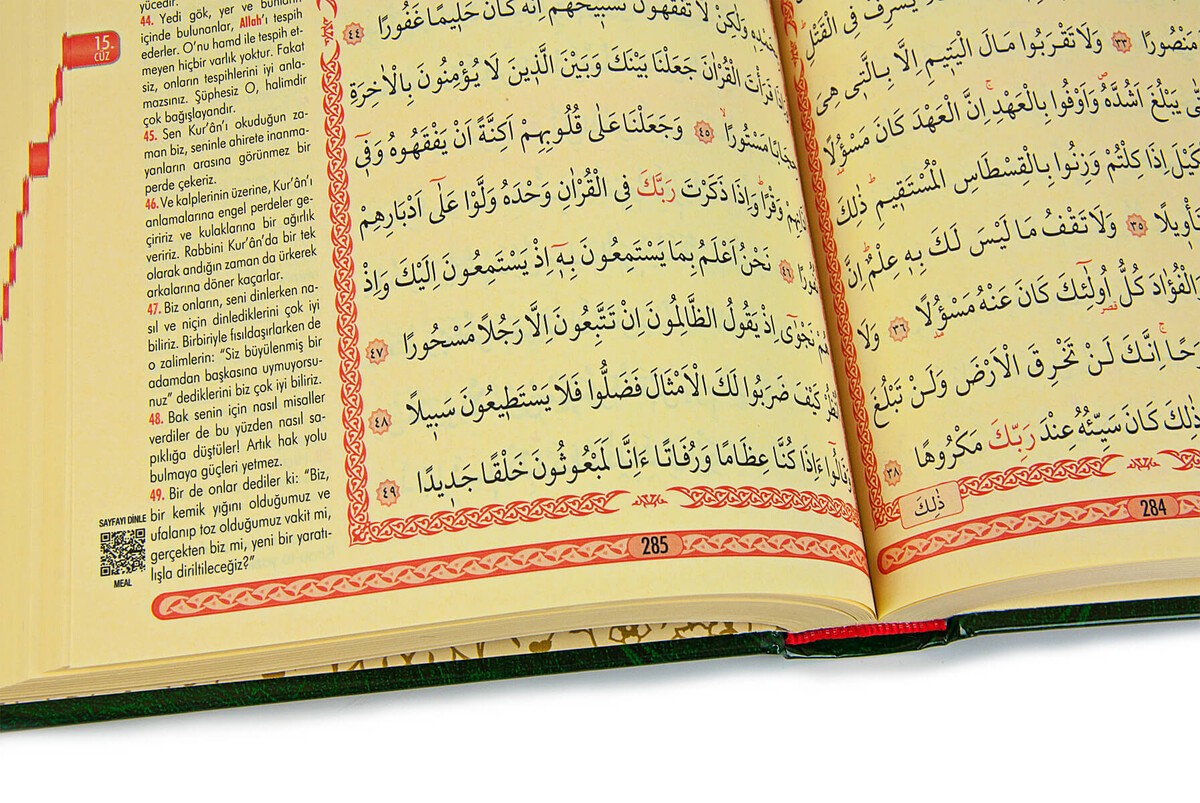 yücedir.
44. Yedi gök, yer ve bunların
içinde bulunanlar, Allah'ı tespih
ederler. O'nu hamd ile tespih et-
meyen hiçbir varlık yoktur. Fakat
siz, onların tespihlerini iyi anla-
mazsınız. Şüphesiz O, halimdir
çok bağışlayandır.
45. Sen Kur'ân'ı okuduğun za-
man biz, seninle ahirete inanma-
yanların arasına görünmez bir
perde çekeriz.
46. Ve kalplerinin üzerine, Kur'ân'ı
anlamalarına engel perdeler ge-
çiririz ve kulaklarına bir ağırlık
veririz. Rabbini Kur'ân'da bir tek
olarak andığın zaman da ürkerek
arkalarına döner kaçarlar.
47. Biz onların, seni dinlerken na-
sıl ve niçin dinlediklerini çok iyi
biliriz. Birbiriyle fısıldaşırlarken de
o zalimlerin: "Siz büyülenmiş bir
adamdan başkasına uymuyorsu-
nuz" dediklerini biz çok iyi biliriz.
48. Bak senin için nasıl misaller
verdiler de bu yüzden nasıl sa-
pıklığa düştüler! Artık hak yolu
bulmaya güçleri yetmez.
49. Bir de onlar dediler ki: "Biz,
bir kemik yığını olduğumuz ve
ufalanıp toz olduğumuz vakit mi,
gerçekten biz mi, yeni bir yaratı-
lışla diriltileceğiz?"
15.
CÜZ
SAYFAYI DİNLE
MEAL
وَلٰكِنْ لَا تَفْقَهُونَ تَسْبِيحَهُمْ اِنَّهُ كَانَ حَلِيمًا غَفُورًا ٤٤
قَرَأْتَ الْقُرْاٰنَ جَعَلْنَا بَيْنَكَ وَبَيْنَ الَّذِينَ لَا يُؤْمِنُونَ بِالْاٰخِرَةِ
مَسْتُورًا ٤٥ وَجَعَلْنَا عَلٰى قُلُوبِهِمْ اَكِنَّةً اَنْ يَفْقَهُوهُ وَفٖٓى
وَقْرًا وَاِذَا ذَكَرْتَ رَبَّكَ فِى الْقُرْاٰنِ وَحْدَهُ وَلَّوْا عَلٰٓى اَدْبَارِهِمْ
٤٦ نَحْنُ اَعْلَمُ بِمَا يَسْتَمِعُونَ بِهٖٓ اِذْ يَسْتَمِعُونَ اِلَيْكَ وَاِذْ
نَجْوٰٓى اِذْ يَقُولُ الظَّالِمُونَ اِنْ تَتَّبِعُونَ اِلَّا رَجُلًا مَسْحُورًا ٤٧
كَيْفَ ضَرَبُوا لَكَ الْاَمْثَالَ فَضَلُّوا فَلَا يَسْتَطٖيعُونَ سَبٖيلًا ٤٨
ءَاِذَا كُنَّا عِظَامًا وَرُفَاتًا ءَاِنَّا لَمَبْعُوثُونَ خَلْقًا جَدٖيدًا ٤٩
285
يُسْرِفْ فِى الْقَتْلِ
مَنْصُورًا ٣٣ وَلَا تَقْرَبُوا مَالَ الْيَتٖيمِ اِلَّا بِالَّتٖى هِىَ
يَبْلُغَ اَشُدَّهُ وَاَوْفُوا بِالْعَهْدِ اِنَّ الْعَهْدَ كَانَ مَسْؤُلًا
اِذَا كِلْتُمْ وَزِنُوا بِالْقِسْطَاسِ الْمُسْتَقٖيمِ ذٰلِكَ
تَأْوٖيلًا ٣٥ وَلَا تَقْفُ مَا لَيْسَ لَكَ بِهٖ عِلْمٌ اِنَّ
وَالْفُؤَادَ كُلُّ اُولٰٓئِكَ كَانَ عَنْهُ مَسْؤُلًا ٣٦ وَلَا
اِنَّكَ لَنْ تَخْرِقَ الْاَرْضَ وَلَنْ تَبْلُغَ
ذٰلِكَ كَانَ سَيِّئُهُ عِنْدَ رَبِّكَ مَكْرُوهًا ٣٨
ذٰلِكَ
284